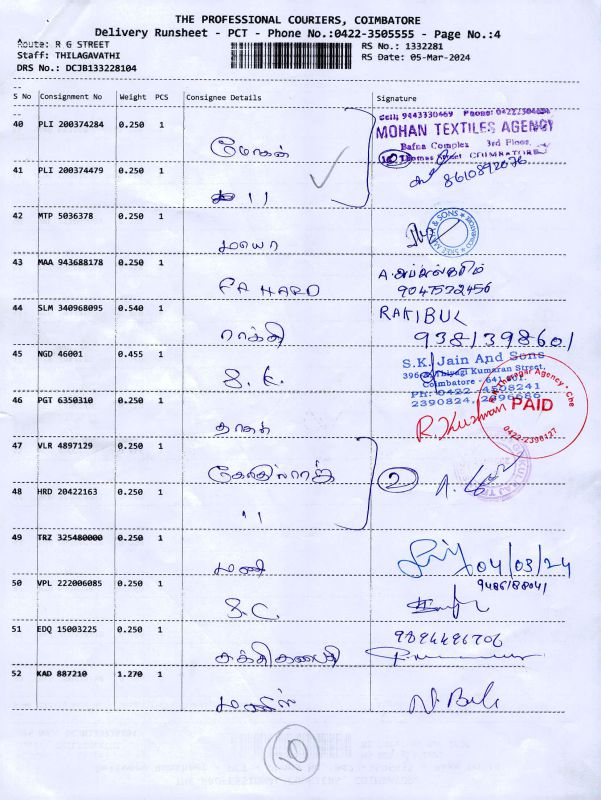 THE PROFESSIONAL COURIERS, COIMBATORE
Delivery Runsheet - PCT - Phone No.:0422-3505555 - Page No.:4
Route: R G STREET
RS No.: 1332281
Staff: THILAGAVATHI
RS Date: 05-Mar-2024
DRS No.: DCJB133228104
S No Consignment No Weight PCS Consignee Details Signature
40 PLI 200374284 0.250 1 மோகன்
Cell: 9443330469 Phone: 0422
MOHAN TEXTILES AGENCY
Bafna Complex 3rd Floor,
Thomas Street COIMBATORE
8610892676
41 PLI 200374479 0.250 1 11
42 MTP 5036378 0.250 1 மாயா
43 MAA 943688178 0.250 1
9047572456
44 SLM 340968095 0.540 1 ராக்கி RAKIBUL
9381398601
45 NGD 46001 0.455 1 S.K.
S.K. Jain And Sons
Thiyagi Kumaran Street,
Coimbatore - 641 001.
Ph: 0422 - 4508241
2390824, 2396686
46 PGT 6350310 0.250 1 R.Kumar
PAID
0422-2398127
47 VLR 4897129 0.250 1 2
48 HRD 20422163 0.250 1 11
49 TRZ 325480000 0.250 1 மணி 04/03/24
50 VPL 222006085 0.250 1 S.C. 9486188041
51 EDQ 15003225 0.250 1 சக்திகணபதி 9894496706
52 KAD 887210 1.270 1
10